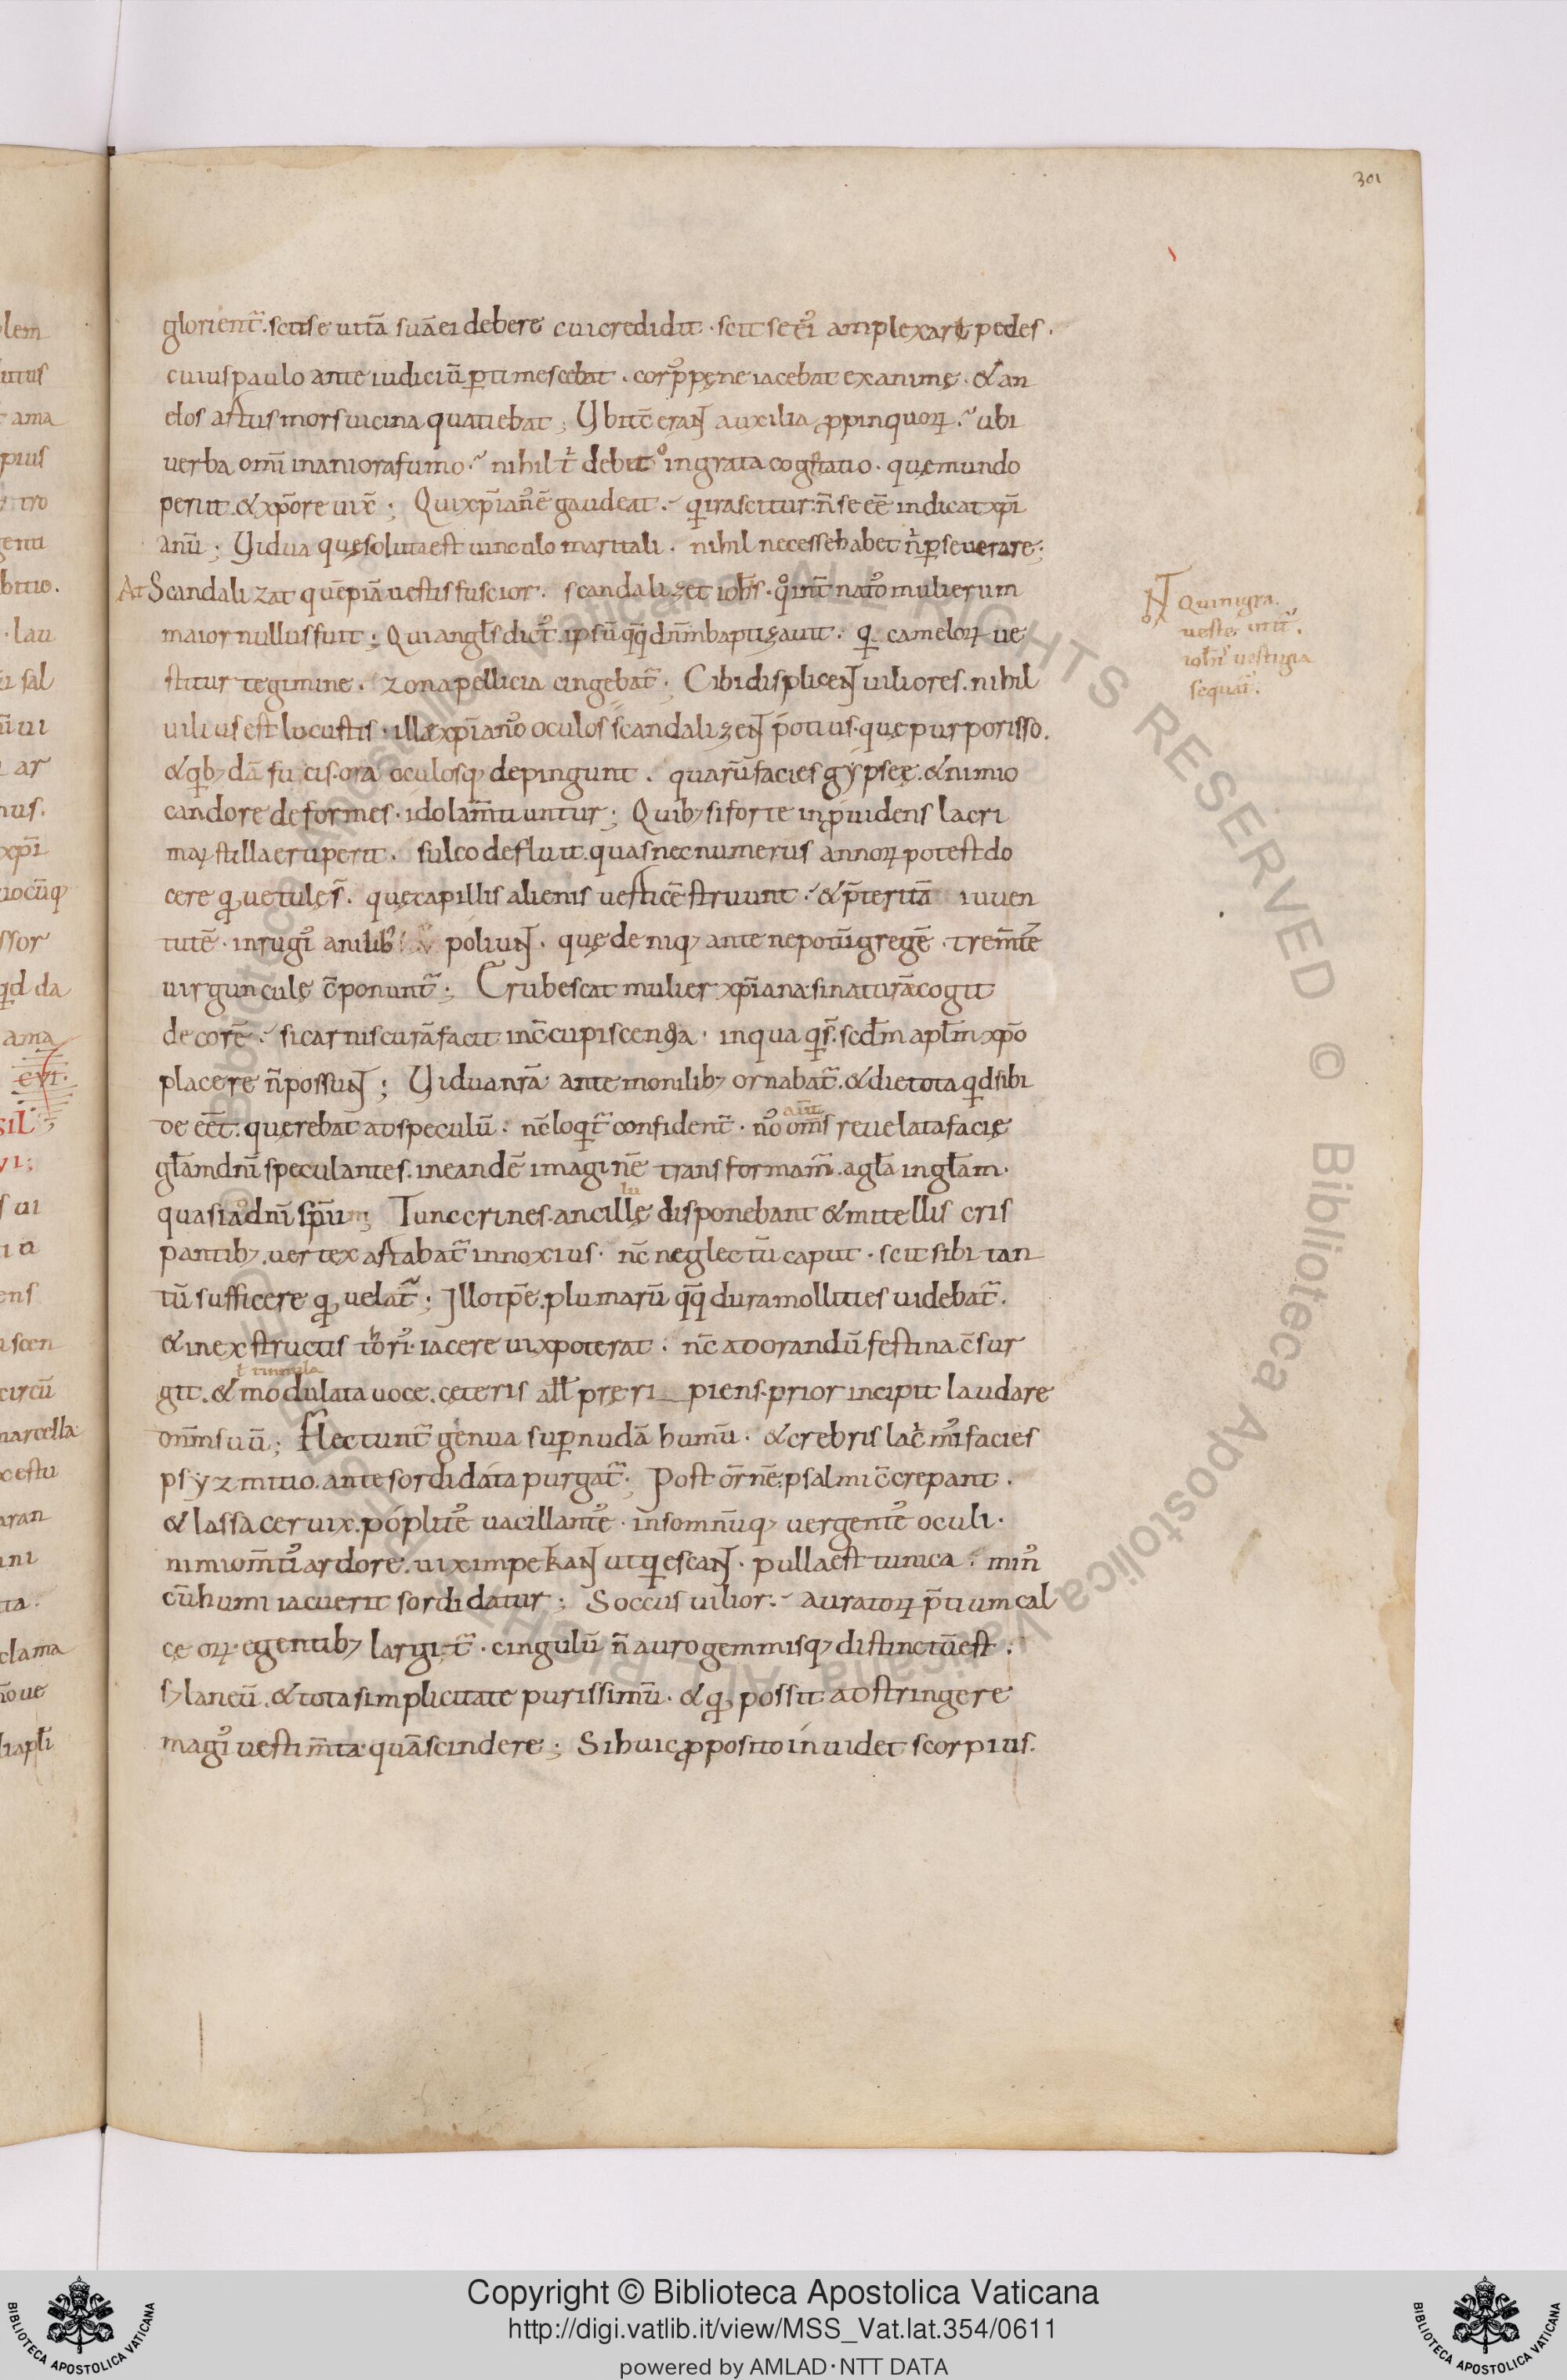 301
glorient̃. scit se uitā suā ei debere cui credidit · scit se ei᷒ amplexari pedes.
cuius paulo ante iudiciū ꝑtimescebat · corp᷒ pęne iacebat exanimę · & an
elos artus mors uicina quatiebat ; Ubi tc̄ erant auxilia ꝓpinquoꝝ · ubi
uerba om̄i inaniora fumo · nihil t̄ debet ingrata cognatio · quę mundo
periit & xp̄o reuix̄ ; Qui xp̄ian᷒ ē gaudeat · qui irascitur n̄ se ēē indicat xp̄i
anū ; Uidua quę soluta est uinculo maritali · nihil necesse habet n̄ ꝑseuerare ;
At Scandalizat quēpiā uestis fuscior · scandalizet ioħs · quo int̄ nato᷒ mulierum
maior nullus fuit ; Qui angl̄s dict᷒ ipsū qq̄ dn̄m baptizauit · q̄ cameloꝝ ue
stitur tegimine · zona pellicia cingebat̃ ; Cibi displicent uiliores · nihil
uilius est locustis · illę xp̄iano᷒ oculos scandalizent potius · quę purporisso.
& qꝫb; dā fucis · ora oculosq; depingunt · quarū facies gypseę · & nimio
candore deformes · idola m̄tiuntur ; Quib; si forte inꝓuidens lacri
maꝝ stilla eruperit · sulco defluit · quas nec numerus annoꝝ potest do
cere qd̄ uetulę s̄ · quę capillis alienis uerticē struunt · & p̄teritā iuuen
tutē · in rugi᷒ anilib; poliunt · quę deniq; ante nepotū gregē · trem̄te᷒
uirgunculę c̄ponunt̃ ; Erubescat mulier xp̄iana · si naturā cogit
decorē · si carnis curā facit in c̄cupiscentia · in qua qi s̄ · scdm apl̄m xp̄o
placere n̄ possunt ; Uidua nr̄a ante monilib; ornabat̃ · & die tota qd̄ sibi
de eēt · quęrebat ad speculū · nc̄ loquit̃ confident̃ · no᷒ aūt om̄s reuelata facię
gl̄am dn̄i speculantes · in eandē imaginē transformam̃ · a gl̄a in gl̄am ·
quasi a dn̄i sp̄u ; Tunc crines · ancillulę disponebant & mitellis cris
pantib; · uertex artabat̃ innoxius · nc̄ neglectū caput · scit sibi tan
tū sufficere qd̄ uelat̃ ; Illo tp̄e · plumarū qq̄ dura mollities uidebat̃ ·
& in exstructis thori᷒ · iacere uix poterat · nc̄ ad orandū festina c̄sur
git · & modulata uoce · cęteris all̄ pręri piens · prior incipit laudare
ł tinnula
dn̄m suū ; Flectunt̃ genua super nudā humū · & crebris lac̄m᷒i facies
psyzmitio · ante sordidata purgat̃ ; Post or̄nē · psalmi c̄crepant ·
& lassa ceruix · poplite᷒ uacillante᷒ · in somnūq; uergente᷒ oculi ·
nimio m̄ti᷒ ardore · uix impetrant ut quiescant · pulla est tunica · min᷒
cū humi iacuerit sordidatur ; Soccus uilior · auratoꝝ p̄tium cal
ceoꝝ · egentib; largit̃ · cingulū n̄ auro gemmisq; distinctū est ·
s; laneū · & tota simplicitate purissimū · & qd̄ possit adstringere
magi᷒ uestim̄ta quā scindere ; Si huic ꝓposito inuidet scorpius.
Qui nigra
ueste utit̃
ioħi᷒ uestigia
sequat̃.
Copyright © Biblioteca Apostolica Vaticana
http://digi.vatlib.it/view/MSS_Vat.lat.354/0611
powered by AMLAD·NTT DATA
BIBLIOTECA APOSTOLICA VATICANA
BIBLIOTECA APOSTOLICA VATICANA